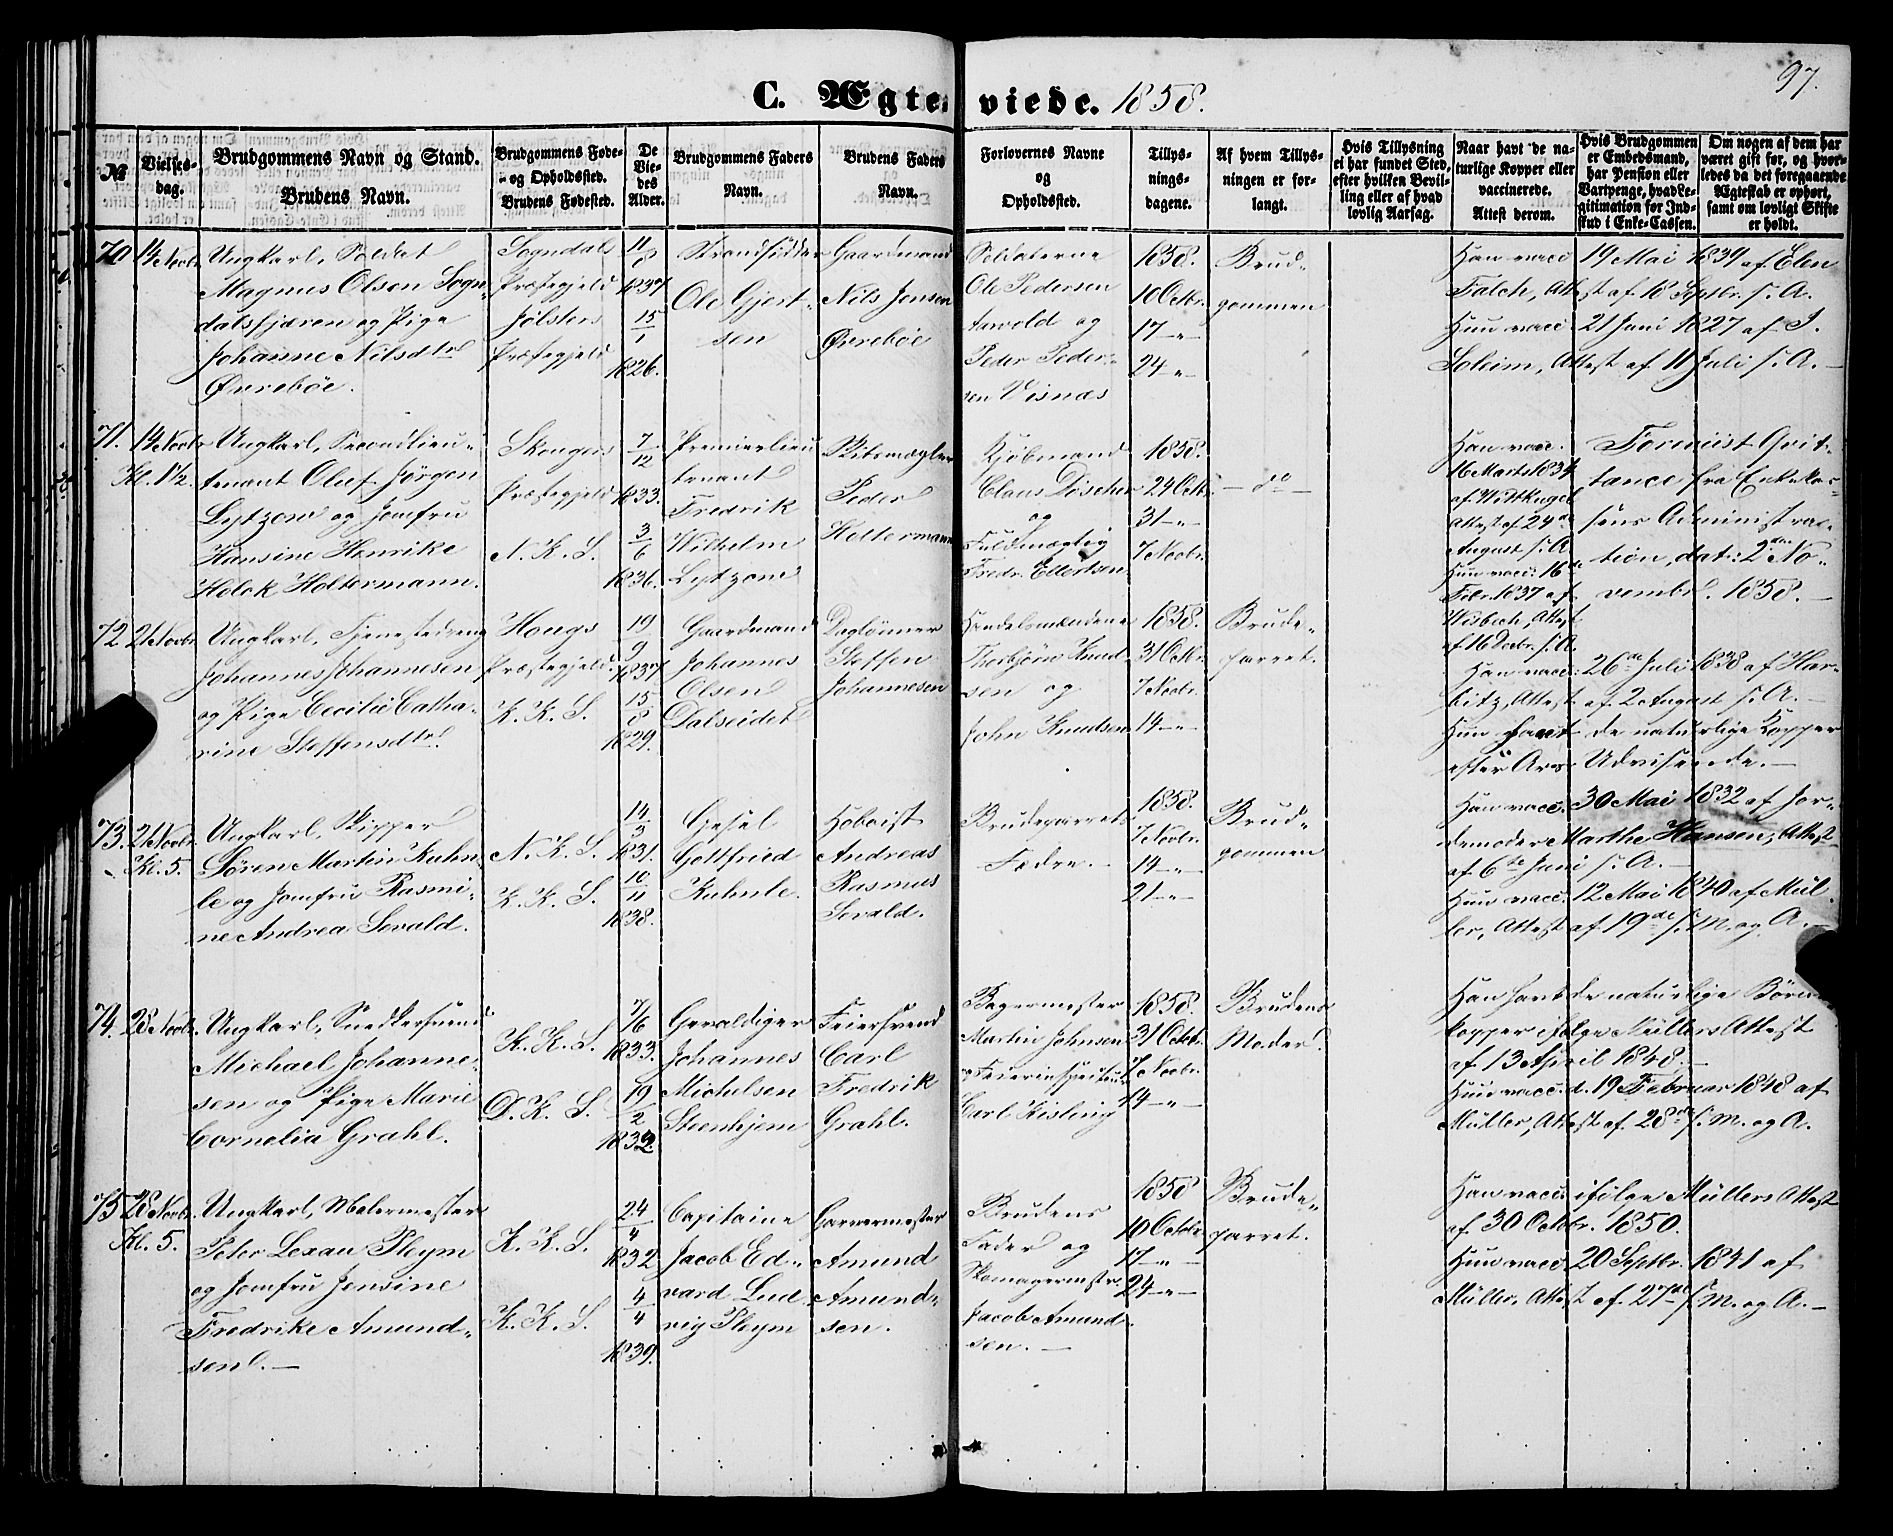 97.
C. Ægteviede. 1858.
№
Vielsesdag.
Brudgommens Navn og Stand.
Brudens Navn.
Brudgommens Føde- og Opholdssted.
Brudens Fødested.
De Viedes Alder.
Brudgommens Faders Navn.
Brudens Faders Navn.
Forlovernes Navne og Opholdssted.
Tillysningsdagene.
Af hvem Tillysningen er forlangt.
Hvis Tillysning ei har fundet Sted, efter hvilken Bevilling eller af hvad lovlig Aarsag.
Naar havt de naturlige Kopper eller vaccinerede. Attest derom.
Hvis Brudgommen er Embedsmand, har Pension eller Vartpenge, hvad Legitimation for Indskud i Enke-Cassen.
Om nogen af dem har været gift før, og hvorledes da det foregaaende Ægteskab er ophørt, samt om lovligt Skifte er holdt.
70
14 Novbr.
Ungkarl, Soldat
Magnus Olsen Sogn-
dalsfjæren og Pige
Johanne Nilsdtr
Øvrebøe.
Sogndals
Præstegjeld
Jølsters
Præstegjeld
11/8
1837
15/1
1826.
Strandsidder
Ole Gjert-
sen
Gaardmand
Nils Jensen
Øvrebøe
Soldaterne
Ole Pedersen
og
Peder Peder-
sen Visnæs
1858.
10 Octbr.
17 -"-
24 -"-
Brud-
gommen
Han vacc. 19 Mai 1839 af Elen
Falch, Attest af 18 Septbr. s. A.
Hun vacc. 21 Juni 1827 af J.
Soleim, Attest af 11 Juli s. A. -
71.
14 Novbr.
Kl. 1½.
Ungkarl, Secondlieu-
tenant Oluf Jørgen
Lytzow og Jomfru
Hansine Henrike
Holck Holtermann.
Skougers
Præstegjeld
N. K. S.
7/12
1833.
3/6
1836.
Premierlieu
tenant
Fredrik
Wilhelm
Lytzow
Skibsmægler
Peder
Holtermann
Kjøbmand
Claus Döscher
og
Fuldmægtig
Fredr. Ellertsen
1858.
24 Octbr.
31 -"-
7 Novbr.
- do -
Han vacc.
16 Marts 1834
af Wittkugel
Attest af 24de
August s. A.
Hun vacc. 16de
Febr. 1837 af
Wisbech, Attest
af 16 Decbr. s. A.
Foreviist Qvit-
tance fra Enkekas-
sens Administra-
tion, dat: 2den No-
vember. 1858. -
72
21 Novbr.
Ungkarl, Tjenestedreng
Johannes Johannesen
og Pige Cecilie Catha-
rine Steffensdtr.
Hougs
Præstegjeld.
K. K. S.
19/9
1837
15/8
1829.
Gaardmand
Johannes
Olsen
Dalseidet
Daglønner
Steffen
Johannesen
Handelsmændene
Thorbjørn Knud-
sen og
John Knudsen
1858.
31 Octbr.
7 Novbr.
14 -"-
Brude-
parret.
Han vacc: 26de Juli 1838 af Har-
bitz, Attest af 2 August s. A. -
Hun havt de naturlige Kopper
efter Ars Udviisende. -
73.
21 Novbr.
Kl. 5.
Ungkarl, Skipper
Søren Martin Kuhn-
le og Jomfru Rasmi-
ne Andrea Sevald.
N. K. S.
K. K. S.
14/3
1831.
10/11
1838.
Gesel
Gottfried
Kuhnle.
Hoboist
Andreas
Rasmus
Sevald.
Brudeparrets
Fædre. -
1858.
7 Novbr.
14 -"-
21 -"-
Brud-
gommen
Han vacc. 30 Mai 1832 af Jor-
demoder Marthe Hansen, Attest
af 6te Juni s. A. -
Hun vacc. 12 Mai 1840 af Mül-
ler, Attest af 19de s. M. og A. -
74.
28 Novbr.
Ungkarl, Snedkersvend
Michael Johanne-
sen og Pige Marie
Cornelia Grahl.
K. K. S.
D. K. S.
7/6
1833.
19/2
Gevaldiger
Johannes
Michelsen
Steenhjem
Feiersvend
Carl
Fredrik
Grahl.
Bagermester
Martin Johnsen
og Feierinspecteur
Carl Kisling
1858.
31 Octbr.
7 Novbr.
14 -"-
Brudens
Moder.
Han havt de naturlige Børne-
kopper ifølge Müllers Attest
af 13 April 1848. -
Hun vacc. d. 19 Februar 1848 af
Müller, Attest af 28de s. M. og A.
75
28 Novbr.
Kl. 5.
Ungkarl, Malermester
Peter Lexau Pleym
og Jomfru Jensine
Fredrike Amund-
sen. -
K. K. S.
K. K. S.
24/4
1832
4/4
1839.
Capitaine
Jacob Ed-
vard Lud-
vig Pleym
Garvermester
Amund
Amund-
sen.
Brudens
Fader og
Skomagermstr.
Jacob Amund-
sen. -
1858
10 Octbr.
17 -"-
24 -"-
Brude-
parret.
Han vacc. ifølge Müllers Attest
af 30 Octbr. 1850.
Hun vacc. 20 Septbr. 1841 af
Müller, Attest af 27de s. M. og A. -